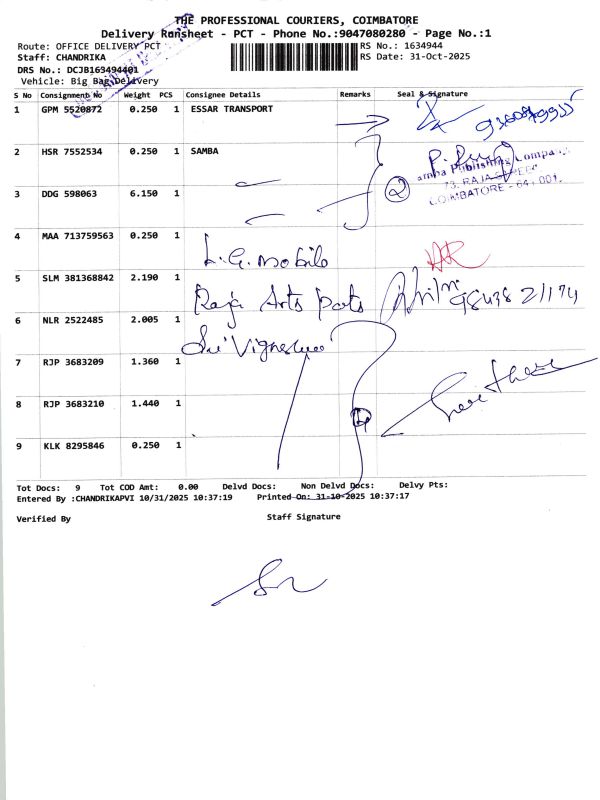 THE PROFESSIONAL COURIERS, COIMBATORE
Delivery Runsheet - PCT - Phone No.:9047080280 - Page No.:1
Route: OFFICE DELIVERY PCT
RS No.: 1634944
Staff: CHANDRIKA
RS Date: 31-Oct-2025
DRS No.: DCJB163494401
Vehicle: Big Bag Delivery
S No Consignment No Weight PCS Consignee Details Remarks Seal & Signature
1 GPM 5520872 0.250 1 ESSAR TRANSPORT
2 HSR 7552534 0.250 1 SAMBA
Publishing Company
73, RAJA STREET
COIMBATORE - 641 001.
2
3 DDG 598063 6.150 1
4 MAA 713759563 0.250 1
L.G. mobile
5 SLM 381368842 2.190 1
Raja Arts pots
98438 21174
6 NLR 2522485 2.005 1
Sri Vignesh
7 RJP 3683209 1.360 1
8 RJP 3683210 1.440 1
4
9 KLK 8295846 0.250 1
Tot Docs: 9 Tot COD Amt: 0.00 Delvd Docs: Non Delvd Docs: Delvy Pts:
Entered By :CHANDRIKAPVI 10/31/2025 10:37:19 Printed On: 31-10-2025 10:37:17
Verified By
Staff Signature